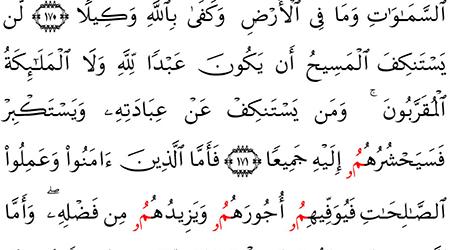 ٱلسَّمَـٰوَٰتِ وَمَا فِى ٱلْأَرْضِ وَكَفَىٰ بِٱللَّهِ وَكِيلًا ﴿١٧٠﴾ لَّن
يَسْتَنكِفَ ٱلْمَسِيحُ أَن يَكُونَ عَبْدًا لِّلَّهِ وَلَا ٱلْمَلَـٰٓئِكَةُ
ٱلْمُقَرَّبُونَ ۚ وَمَن يَسْتَنكِفْ عَنْ عِبَادَتِهِۦ وَيَسْتَكْبِرْ
فَسَيَحْشُرُهُمُۥ إِلَيْهِ جَمِيعًا ﴿١٧١﴾ فَأَمَّا ٱلَّذِينَ ءَامَنُوا۟ وَعَمِلُوا۟
ٱلصَّـٰلِحَـٰتِ فَيُوَفِّيهِمُۥ أُجُورَهُمُۥ وَيَزِيدُهُمُۥ مِن فَضْلِهِۦ ۖ وَأَمَّا